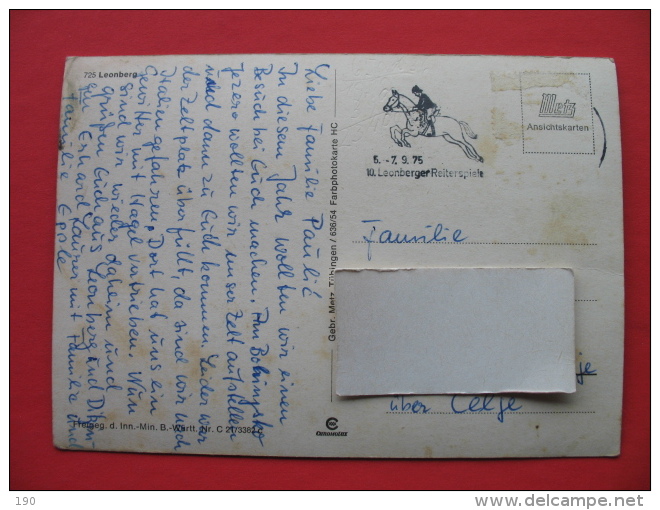 725 Leonberg
Liebe Familie Paulič
In diesem Jahr wollten wir einen
Besuch bei Euch machen. Am Bohinjsko
Jezero wollten wir unser Zelt aufstellen
und dann zu Euch kommen. Leider war
der Zeltplatz überfüllt, da sind wir nach
Italien gefahren. Dort hat uns ein
Gewitter mit Hagel vertrieben. Nun
sind wir wieder daheim und
grüßen Euch aus Leonberg und
Erhard mit Familie und
Familie Epple
Freigeg. d. Inn.-Min. B.-Württ. Nr. C 21/3362 c
Gebr. Metz, Tübingen / 636/54 Farbphotokarte HC
CHROMOLUX
5. -7. 9. 75
10. Leonberger Reiterspiele
Metz
Ansichtskarten
Familie
über Celje
190
www.delcampe.net